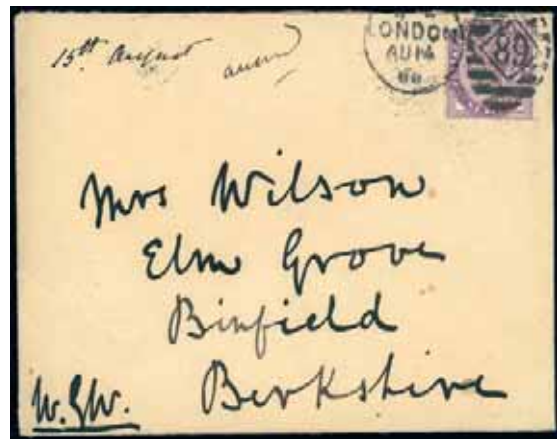 15th August
LONDON
AU 14
89
Mrs Wilson
Elm Grove
Binfield
Berkshire
W.G.W.